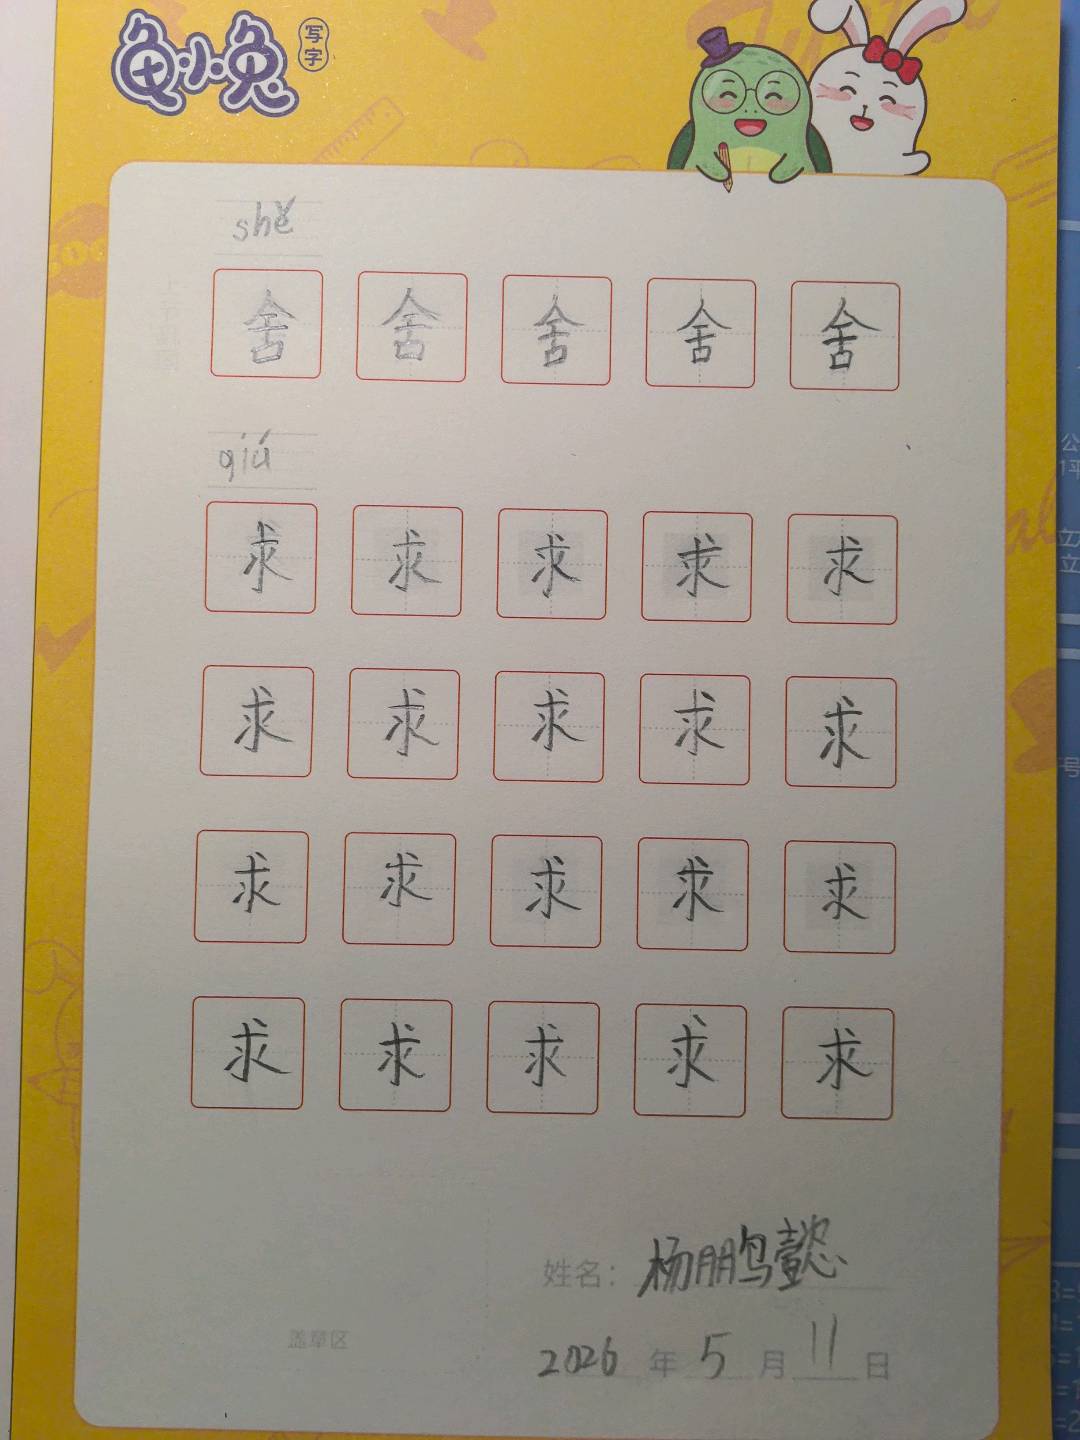 龟小兔 写字
shě
舍 舍 舍 舍 舍
qiú
求 求 求 求 求
求 求 求 求 求
求 求 求 求 求
求 求 求 求 求
姓名：杨鹏懿
盖章区
2026 年 5 月 11 日